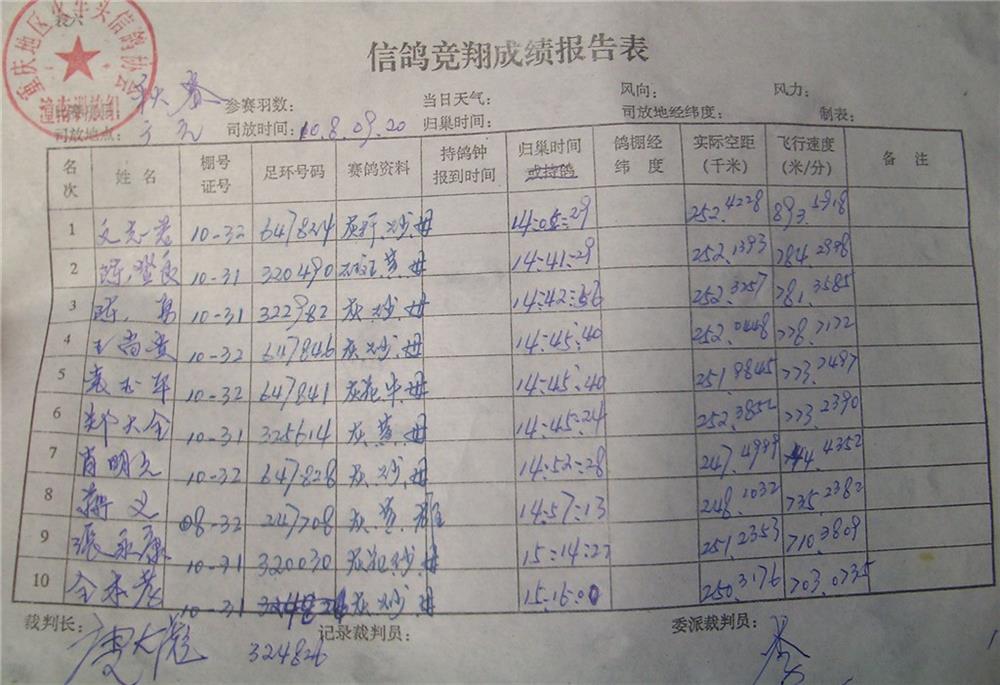 表六
重庆地区火牛头信鸽协会
信鸽竞翔成绩报告表
秋赛 参赛羽数： 当日天气： 风向： 风力：
司放地点： 广元 司放时间：10.8.09.20 归巢时间： 司放地经纬度： 制表：
名次 姓名 棚号证号 足环号码 赛鸽资料 持鸽钟报到时间 归巢时间或持鸽 鸽棚经纬度 实际空距(千米) 飞行速度(米/分) 备注
1 10-32 647824 14:05:29 252.4228 893.5918
2 10-31 320490 14:41:29 252.1393 784.2998
3 陈勇 10-31 322982 灰.沙.母 14:42:56 252.3257 781.3585
4 王尚贵 10-32 647846 灰.沙.母 14:45:40 252.0448 778.7172
5 10-32 647841 14:45:40 251.9845 773.7497
6 郑大全 10-31 325614 灰.黄.母 14:45:24 252.3852 773.2390
7 肖明元 10-32 647828 灰.沙.母 14:52:28 247.4999 744.4352
8 蒋文 08-32 247708 灰.黄.雄 14:57:13 248.1032 735.2382
9 张永康 10-31 320030 15:14:27 251.2353 710.3809
10 10-31 灰.沙.母 15:16:00 250.3176 703.0735
裁判长： 记录裁判员： 委派裁判员：
324826